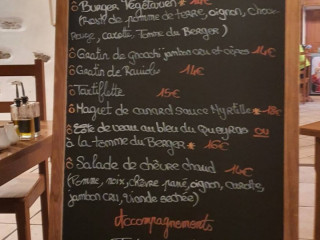 ô Burger Végétarien
(Rosti de pomme de terre, oignon, Choux
rouge, carotte, Tomme du Berger)
ô Gratin de gnocchi jambon cru et cèpes 14€
ô Gratin de Ravioli 14€
ô Tartiflette 15€
ô Magret de canard sauce Myrtille
ô de veau au bleu du Queyras ou
à la tomme du Berger 16€
ô Salade de chèvre chaud 14€
(Pomme, noix, chèvre pané, oignon, carotte,
jambon cru, viande sechée)
Accompagnements